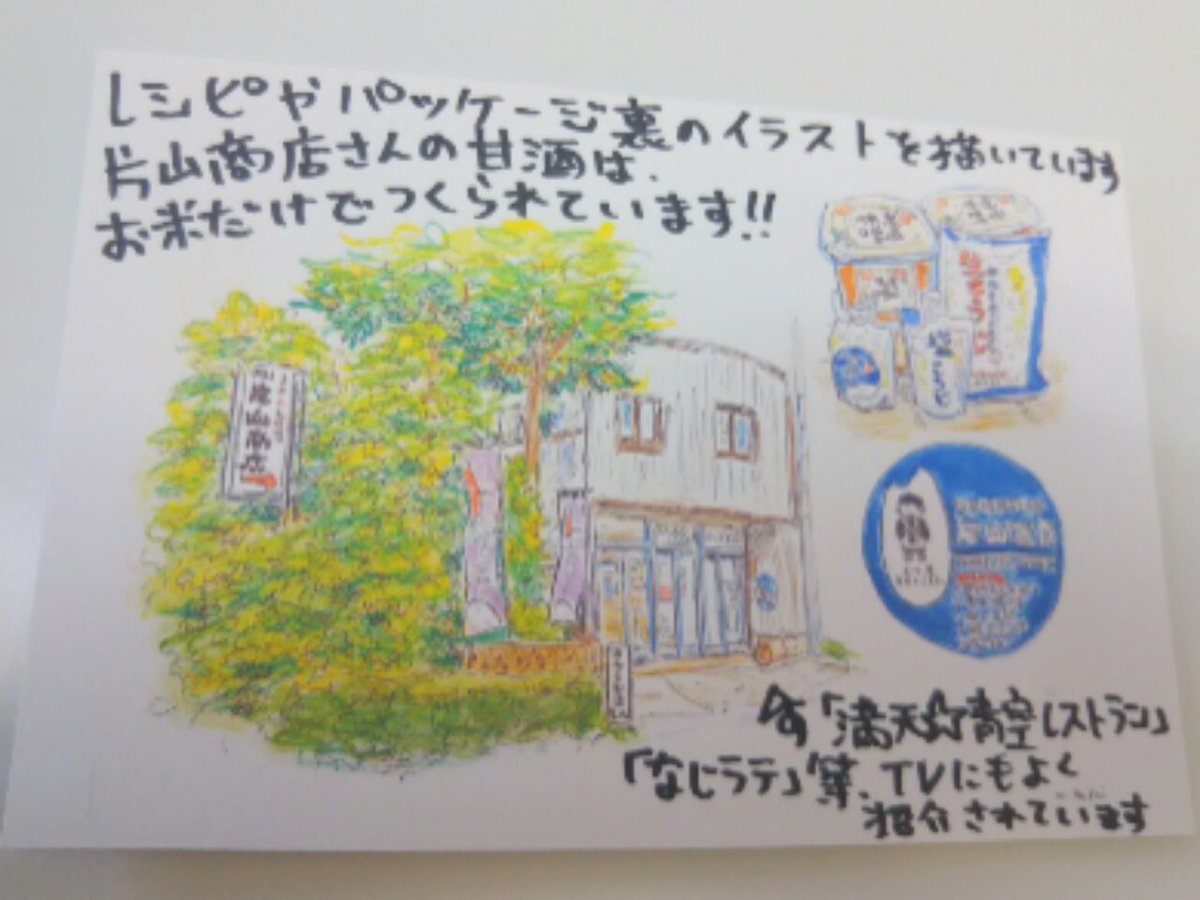 レシピやパッケージ裏のイラストを描いています
片山商店さんの甘酒は、
お米だけでつくられています!!
片山商店
片山商店
「満天☆青空レストラン」
「なじラテ」等、TVにもよく
紹介されています